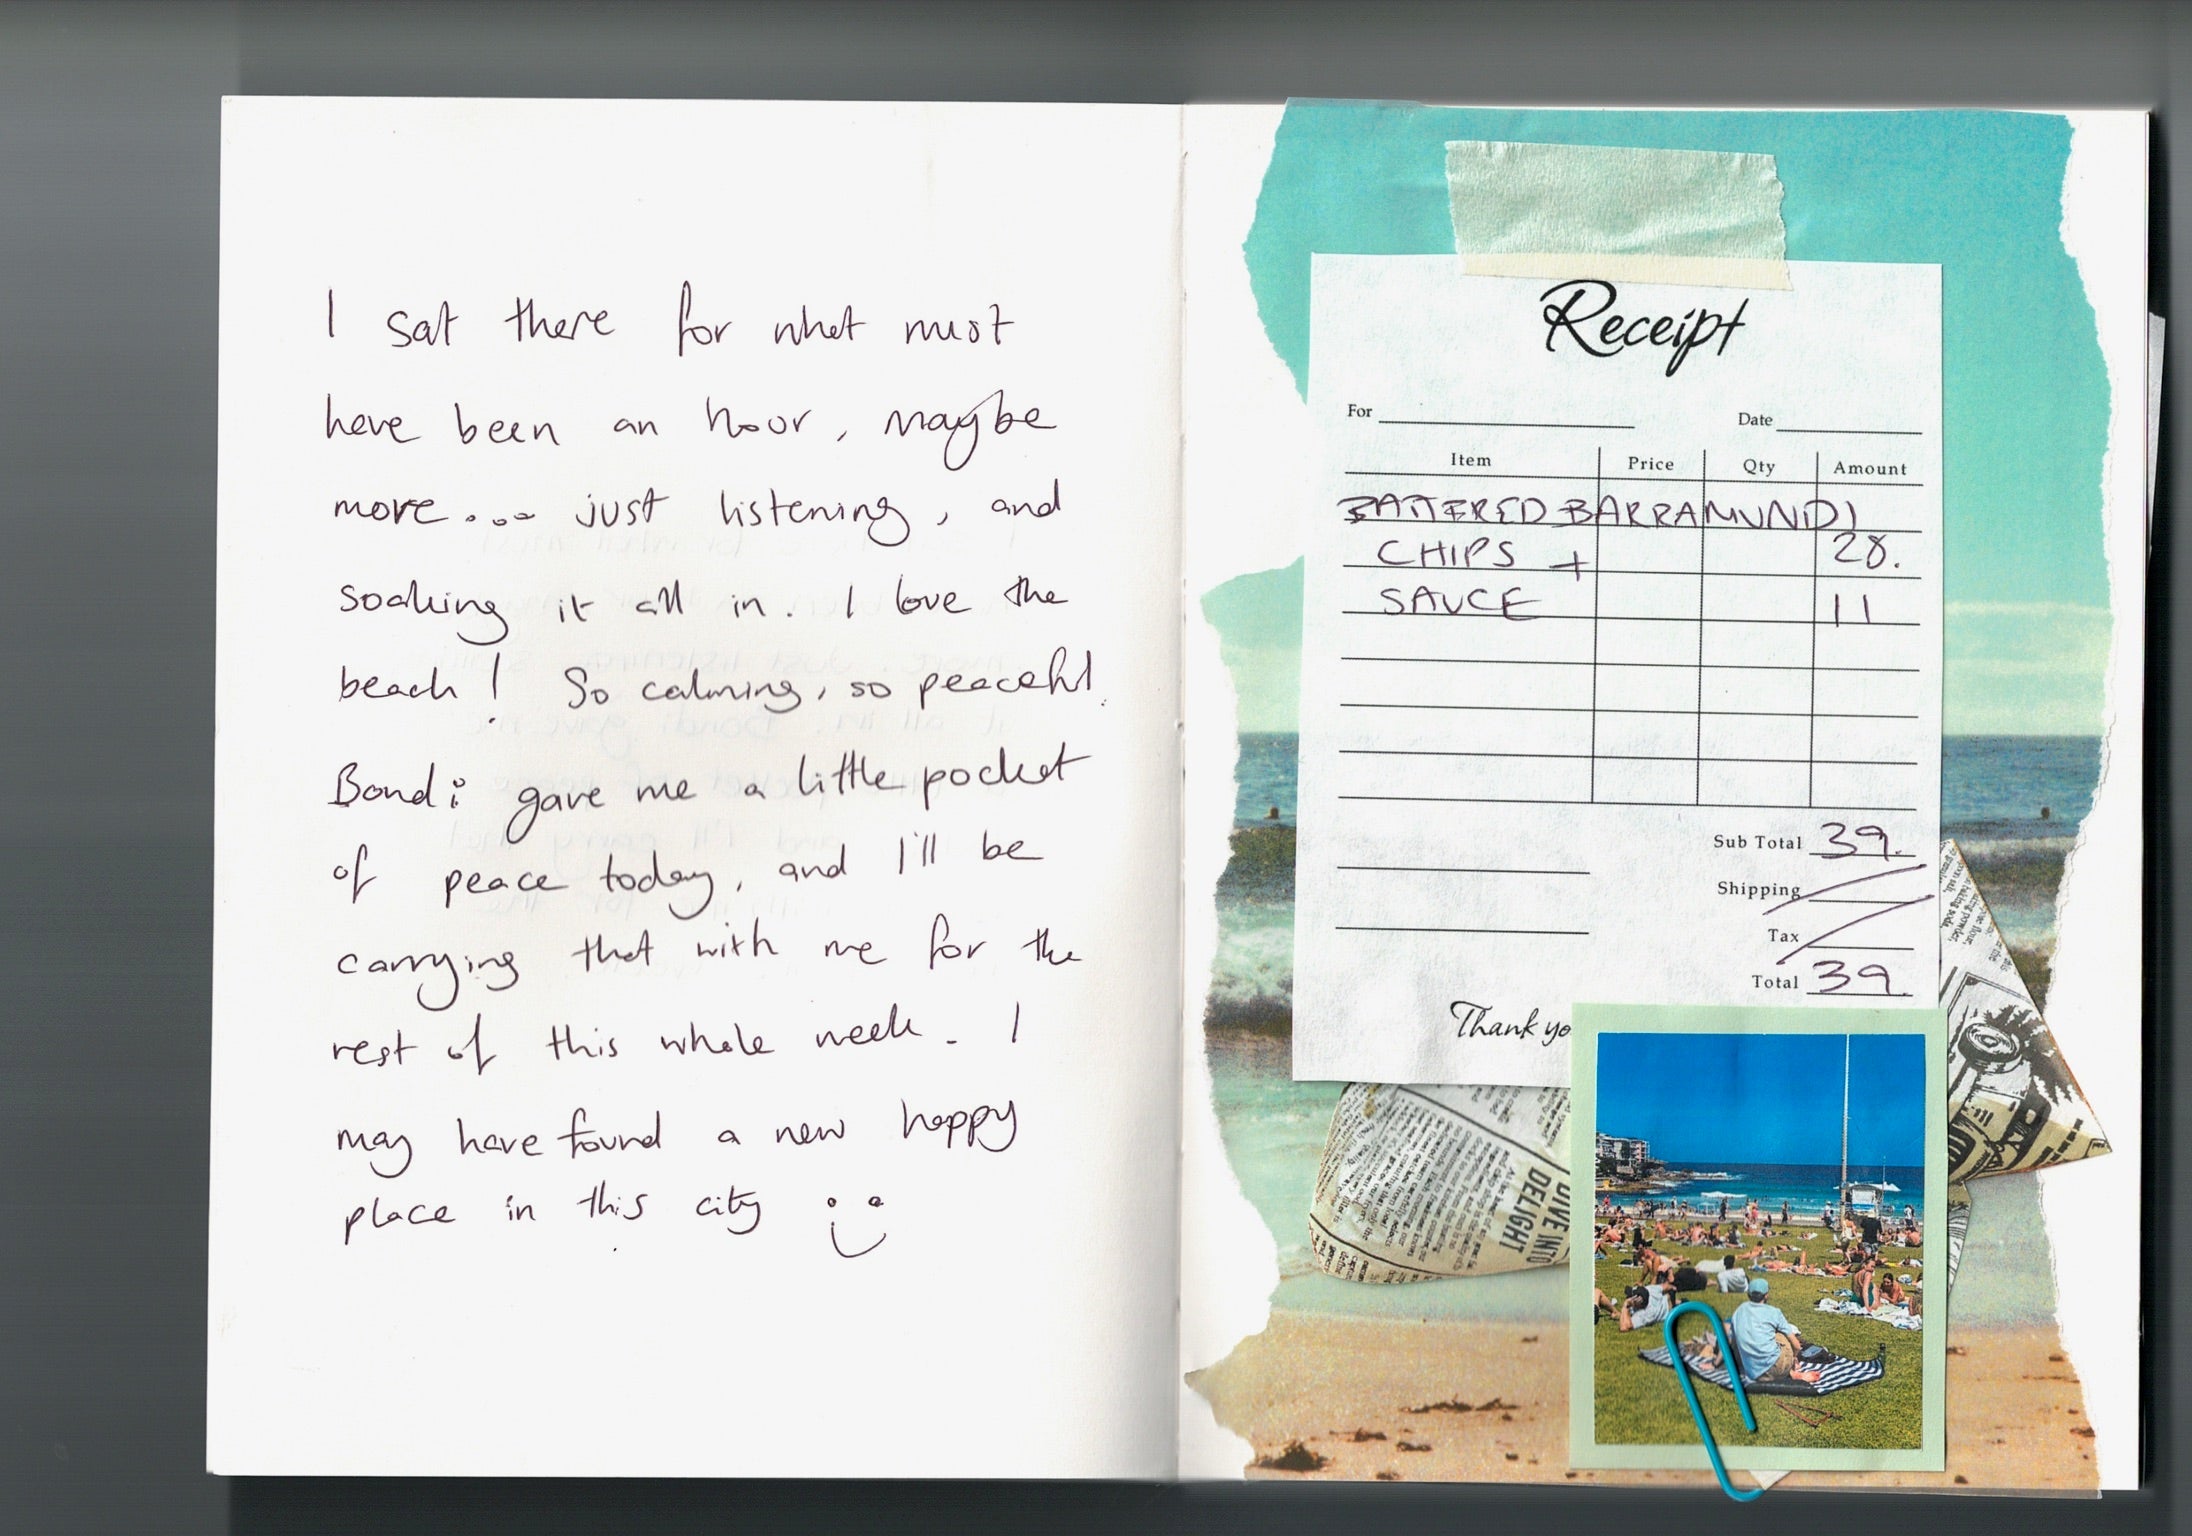 I sat there for what must
have been an hour, maybe
more... just listening, and
soaking it all in. I love the
beach! So calming, so peaceful.
Bondi gave me a little pocket
of peace today, and I'll be
carrying that with me for the
rest of this whole week. I
may have found a new happy
place in this city :)
Receipt
For Date
Item Price Qty Amount
BATTERED BARRAMUNDI
CHIPS + 28.
SAUCE 11
Sub Total 39.
Shipping
Tax
Total 39.
Thank yo
DIVE INTO
DELIGHT